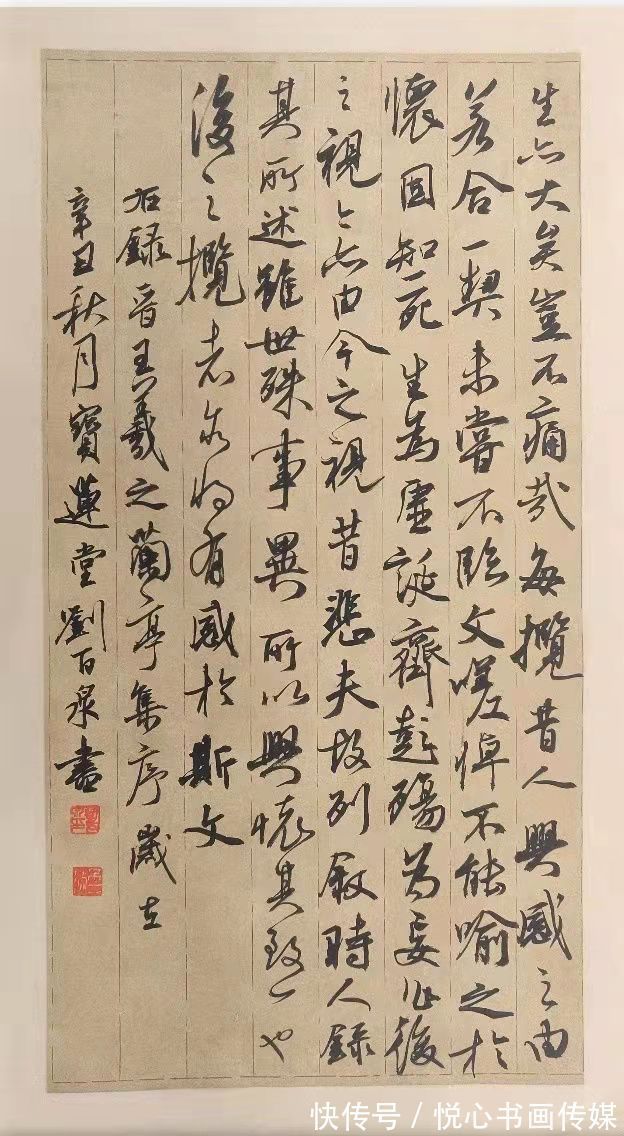 生亦大矣豈不痛哉每攬昔人興感之由
若合一契未嘗不臨文嗟悼不能喻之於
懷固知一死生為虛誕齊彭殤為妄作後
之視今亦由今之視昔悲夫故列敘時人錄
其所述雖世殊事異所以興懷其致一也
後之攬者亦將有感於斯文
右錄晉王羲之蘭亭集序歲在
辛丑秋月寶蓮堂劉百泉書
快传号 / 悦心书画传媒